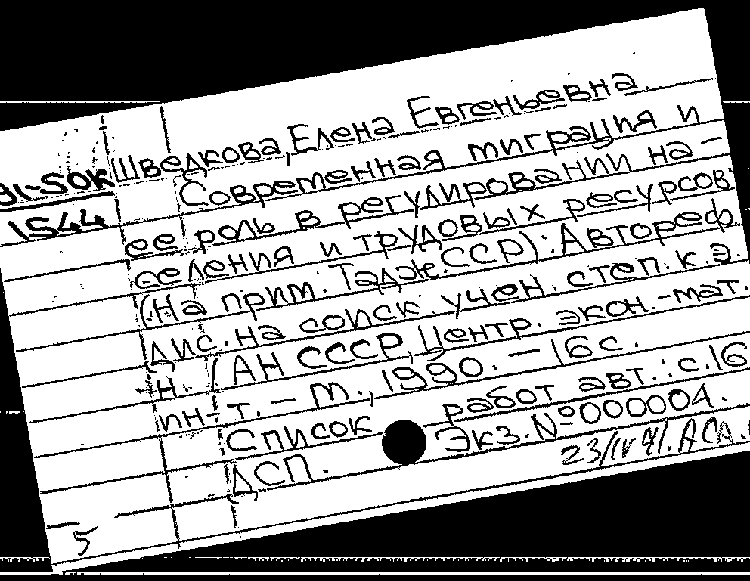 Шведкова, Елена Евгеньевна.
91-50К
1544
Современная миграция и
ее роль в регулировании на-
селения и трудовых ресурсов
(На прим. Тадж.ССР): Автореф.
дис. на соиск. учен. степ. к. э.
н. / АН СССР, Центр. экон.-мат.
ин-т. – М., 1990. – 16 с.
Список работ авт.: с.16
ДСП. Экз. №000004.
23/IV 91. АСА.
5